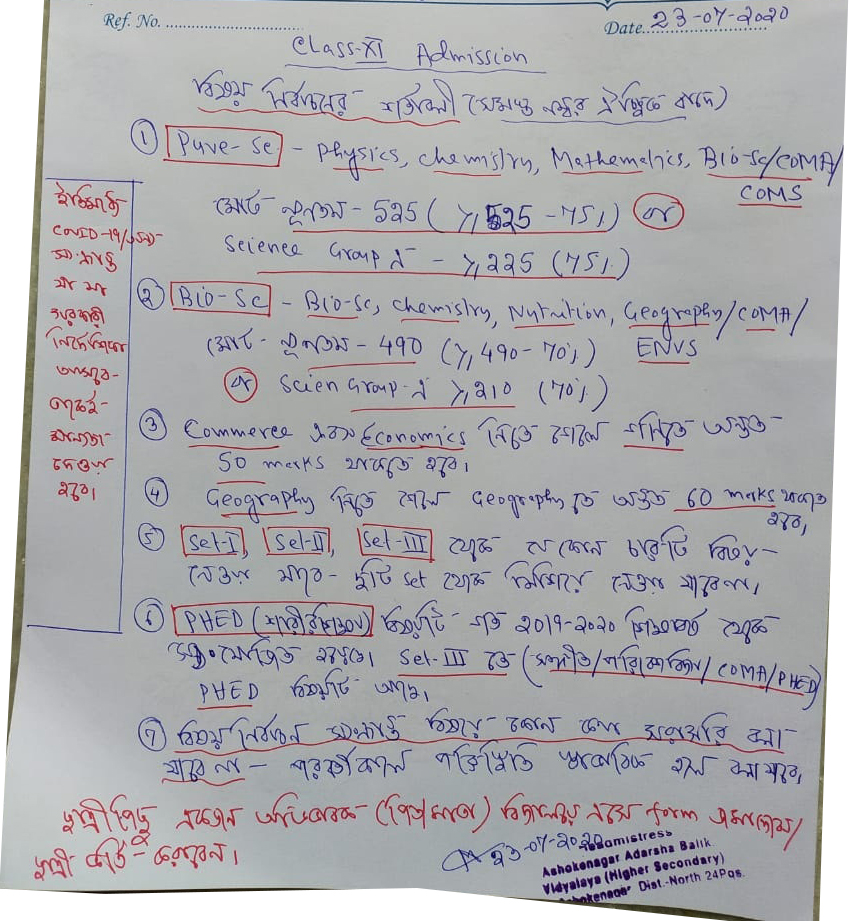 Ref. No. ............................
Date. 23-07-2020
Class-XI Admission
বিষয় নির্বাচনের শর্তাবলী (সমস্ত নম্বর ঐচ্ছিক বাদে)
① Pure-Sc - Physics, Chemistry, Mathematics, Bio-Sc/COMA/
COMS
মোট ন্যূনতম - 525 (≥525 - 75%) or
Science Group এ - ≥225 (75%)
② Bio-Sc - Bio-Sc, Chemistry, Nutrition, Geography/COMA/
ENVS
মোট - ন্যূনতম - 490 (≥490 - 70%)
or Scien Group-এ ≥210 (70%)
③ Commerce এবং Economics নিতে গেলে গণিতে অন্তত
50 marks থাকতে হবে।
④ Geography নিতে গেলে Geography তে অন্তত 60 marks থাকতে
হবে,
⑤ Set-I, Set-II, Set-III থেকে যে কোন চারটি বিষয় -
নেওয়া যাবে - দুটি Set থেকে মিশিয়ে নেওয়া যাবেনা।
⑥ PHED (শারীরশিক্ষা) বিষয়টি গত 2019-2020 শিক্ষাবর্ষ থেকে
সংযোজিত হয়েছে। Set-III তে (সঙ্গীত/পরিবেশবিদ্যা/COMA/PHED)
PHED বিষয়টি আছে,
⑦ বিষয় নির্বাচন সংক্রান্ত বিষয়ে কোন কথা সরাসরি বলা
যাবে না - পরবর্তীকালে পরিস্থিতি স্বাভাবিক হলে বলা যাবে,
ইতিমধ্যে
COVID-19/
সংক্রান্ত
যা যা
সরকারী
নির্দেশিকা
আসবে-
তাকেই-
মান্যতা
দেওয়া
হবে।
ছাত্রীপিছু একজন অভিভাবক (পিতা/মাতা) বিদ্যালয়ে এসে form জমা দেবেন/
ছাত্রী ভর্তি - করাবেন।
23-07-2020
Ashokenagar Adarsha Balik
Vidyalaya (Higher Secondary)
Dist.-North 24Pgs.